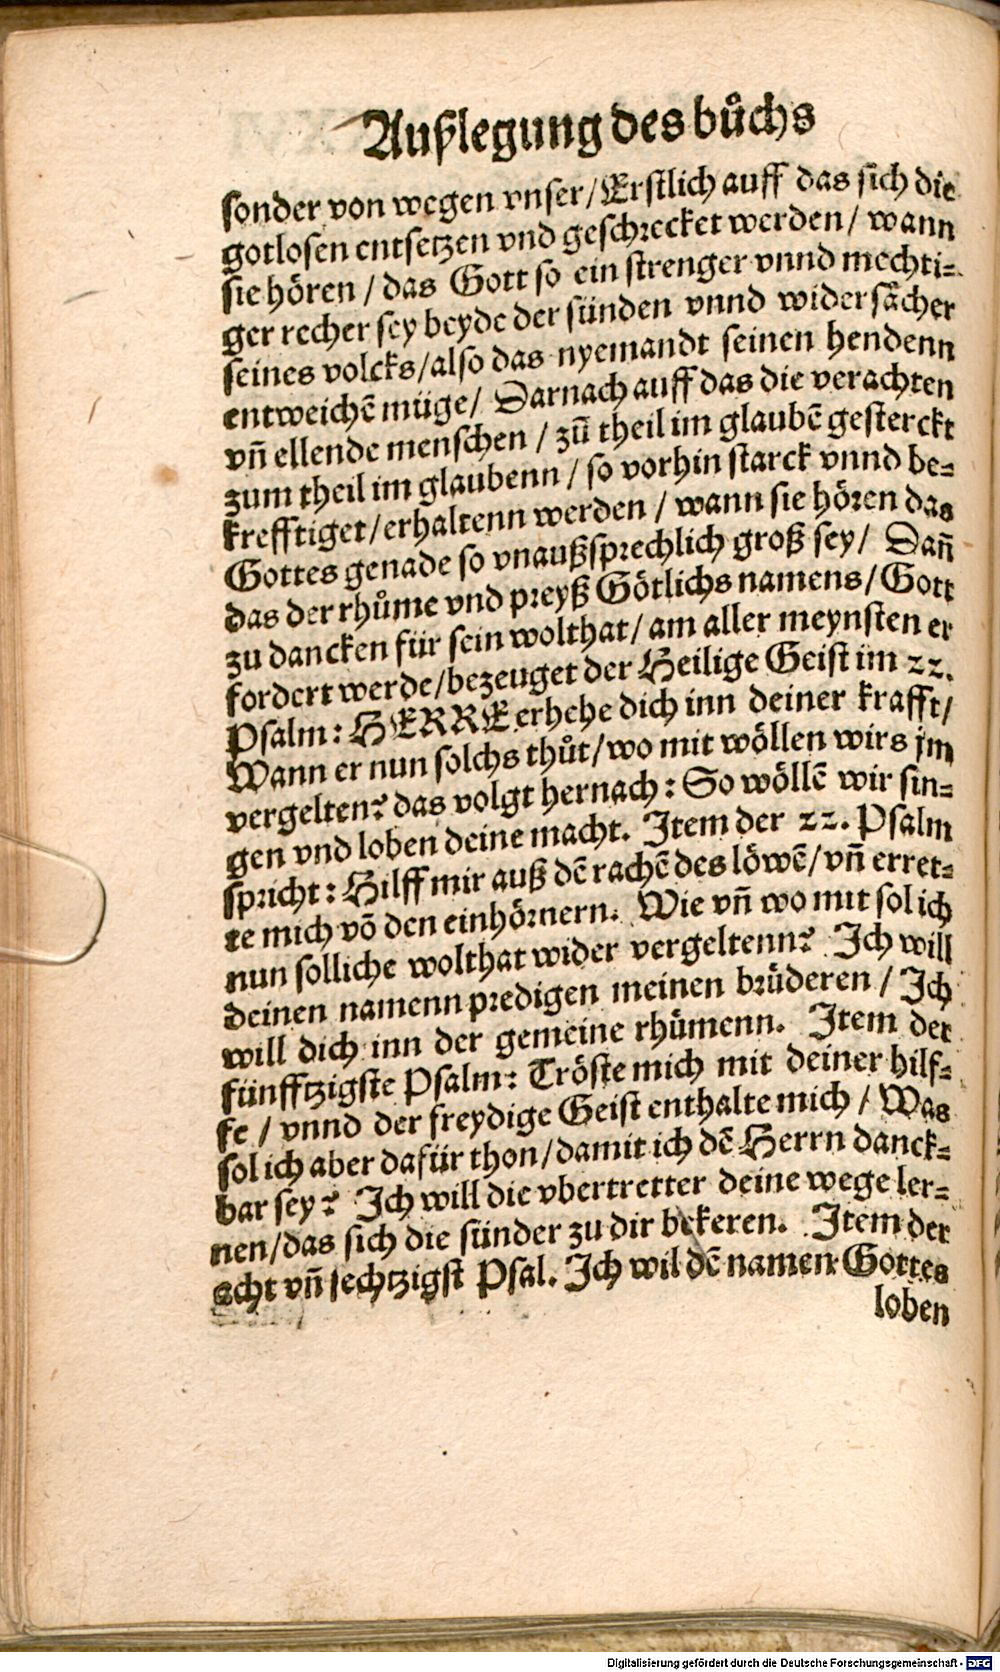 Außlegung des bůchs
sonder von wegen vnser/Erstlich auff das sich die
gotlosen entsetzen vnd geschrecket werden/ wann
sie hören / das Gott so ein strenger vnnd mechti-
ger recher sey beyde der sünden vnnd widersächer
seines volcks/also das nyemandt seinen hendenn
entweichē müge/ Darnach auff das die verachten
vñ ellende menschen / zū theil im glaubē gesterckt
zum theil im glaubenn / so vorhin starck vnnd be-
krefftiget/erhaltenn werden / wann sie hören das
Gottes genade so vnaußsprechlich groß sey/ Dañ
das der rhůme vnd preyß Götlichs namens/Gott
zu dancken für sein wolthat/ am aller meynsten er
fordert werde/bezeuget der Heilige Geist im 22.
Psalm: HERRE erhehe dich inn deiner krafft/
Wann er nun solchs thůt/wo mit wöllen wirs jm
vergelten? das volgt hernach: So wöllē wir sin-
gen vnd loben deine macht. Item der 22. Psalm
spricht: Hilff mir auß dē rachē des löwē/vñ erret-
te mich vō den einhörnern. Wie vñ wo mit sol ich
nun solliche wolthat wider vergeltenn? Ich will
deinen namenn predigen meinen brüderen / Ich
will dich inn der gemeine rhümenn. Item der
fünfftzigste Psalm: Tröste mich mit deiner hilf-
fe / vnnd der freydige Geist enthalte mich / Was
sol ich aber dafür thon/damit ich dē Herrn danck-
bar sey? Ich will die vbertretter deine wege ler-
nen/das sich die sünder zu dir bekeren. Item der
acht vñ sechtzigst Psal. Ich wil dē namen Gottes
loben
Digitalisierung gefördert durch die Deutsche Forschungsgemeinschaft - DFG